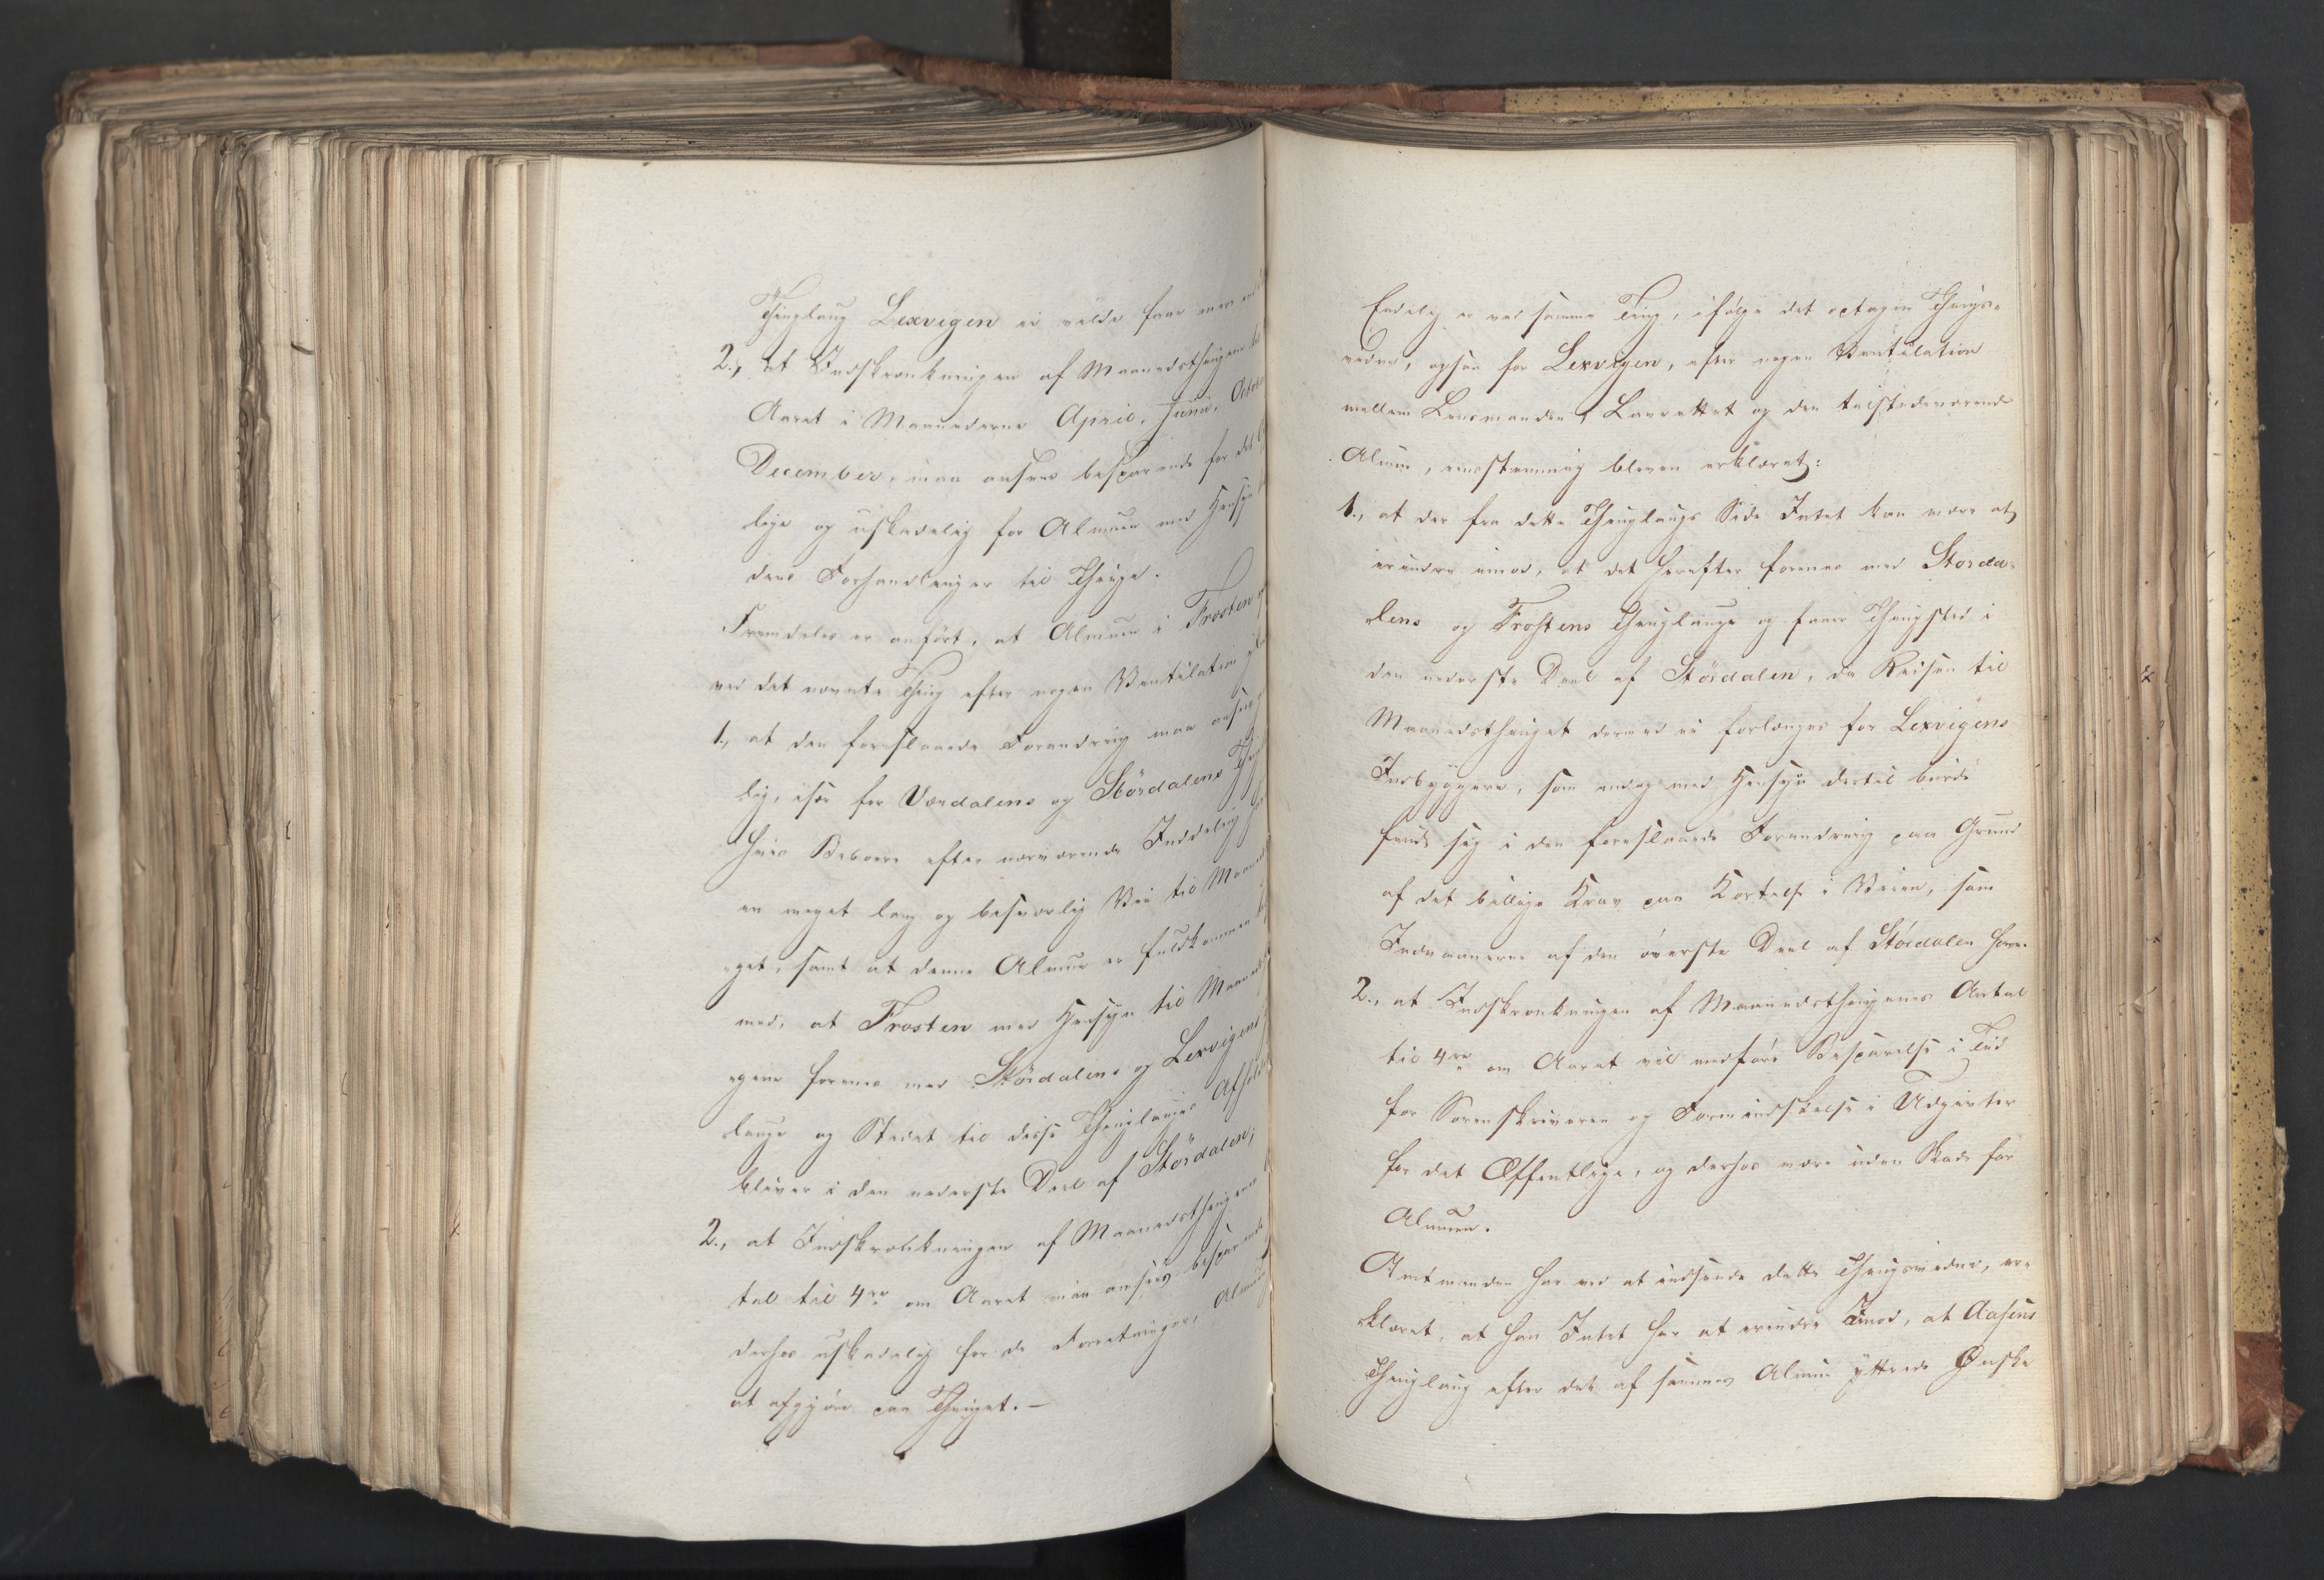 Thinglaug Lexvigen ei vilde faae mere
2., at Indskrænkningen af Maanedsthingene
Aaret i Maanederne April, Juni, Octob
December, maa ansees besparende for det
lige og uskadelig for Almuen med Hensyn
dens Forhandlinger til Thinge.
Fremdeles er anført, at Almuen i Frosten
ved det nævnte Thing efter nogen Ventilation
1., at den foreslaaede Forandring maa ansees
lig, især for Værdalens og Stördalens
hvis Beboere efter nærværende Inddeling
en meget lang og besværlig Vei til Maaneds
get, samt at denne Almue er fuldkommen
med, at Frosten med Hensyn til Maaneds
gene forenes med Stördalens og Lexvigens
lauge og Stedet til disse Thinglauges Afhold
bliver i den nederste Deel af Stördalen;
2., at Indskrænkningen af Maanedsthingenes
tal til 4re om Aaret maa ansees besparende
derhos uskadelig for de Forretninger, Almuen
at afgjøre paa Thinget. –
Endelig er ved samme Ting, ifølge det optagne Things-
vidne, ogsaa for Lexvigen, efter nogen Ventilation
mellem Lensmanden, Laugrettet og den tilstedeværende
Almue, eenstemmig bleven erklæret:
1., at der fra dette Thinglaugs Side Intet kan være at
erindre imod, at det herefter forenes med Störda-
lens og Frostens Thinglauge og faaer Thingsted i
den nederste Deel af Stördalen, da Reisen til
Maanedsthinget derved ei forlænges for Lexvigens
Indbyggere, som endog med Hensyn dertil burde
finde sig i den foreslaaede Forandring paa Grund
af det billige Krav paa Kortelse i Veien, som
Indvaanerne af den överste Deel af Stördalen have.
2., at Indskrænkningen af Maanedsthingenes Antal
til 4re om Aaret vil medføre Besparelse i Tid
for Sorenskriveren og Formindskelse i Udgivter
for det Offentlige, og derhos være uden Skade for
Almuen.
Amtmanden har ved at indsende dette Thingsvidne, er-
klæret, at han Intet har at erindre imod, at Aasens
Thinglaug efter det af sammes Almue yttrede Ønske